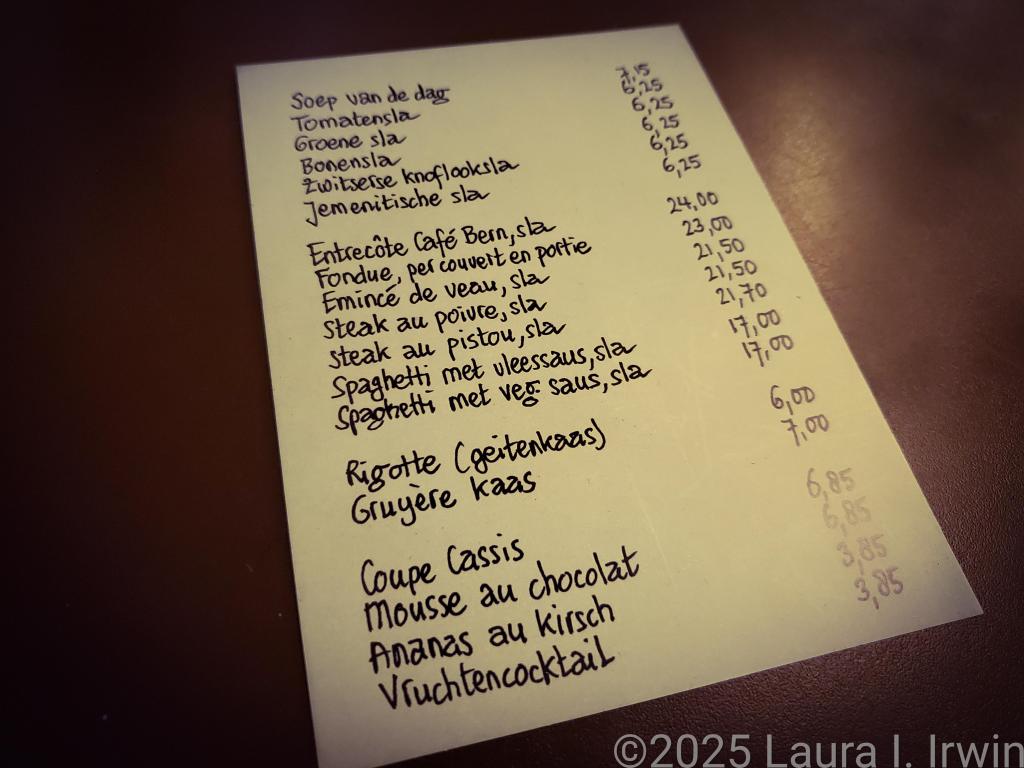 Soep van de dag 7,15
Tomatensla 6,25
Groene sla 6,25
Bonensla 6,25
Zwitserse knoflooksla 6,25
Jemenitische sla 6,25
Entrecôte Café Bern, sla 24,00
Fondue, per couvert en portie 23,00
Emincé de veau, sla 21,50
Steak au poivre, sla 21,50
Steak au pistou, sla 21,70
Spaghetti met vleessaus, sla 17,00
Spaghetti met veg. saus, sla 17,00
Rigotte (geitenkaas) 6,00
Gruyère kaas 7,00
Coupe Cassis 6,85
Mousse au chocolat 6,85
Ananas au kirsch 3,85
Vruchtencocktail 3,85
©2025 Laura I. Irwin